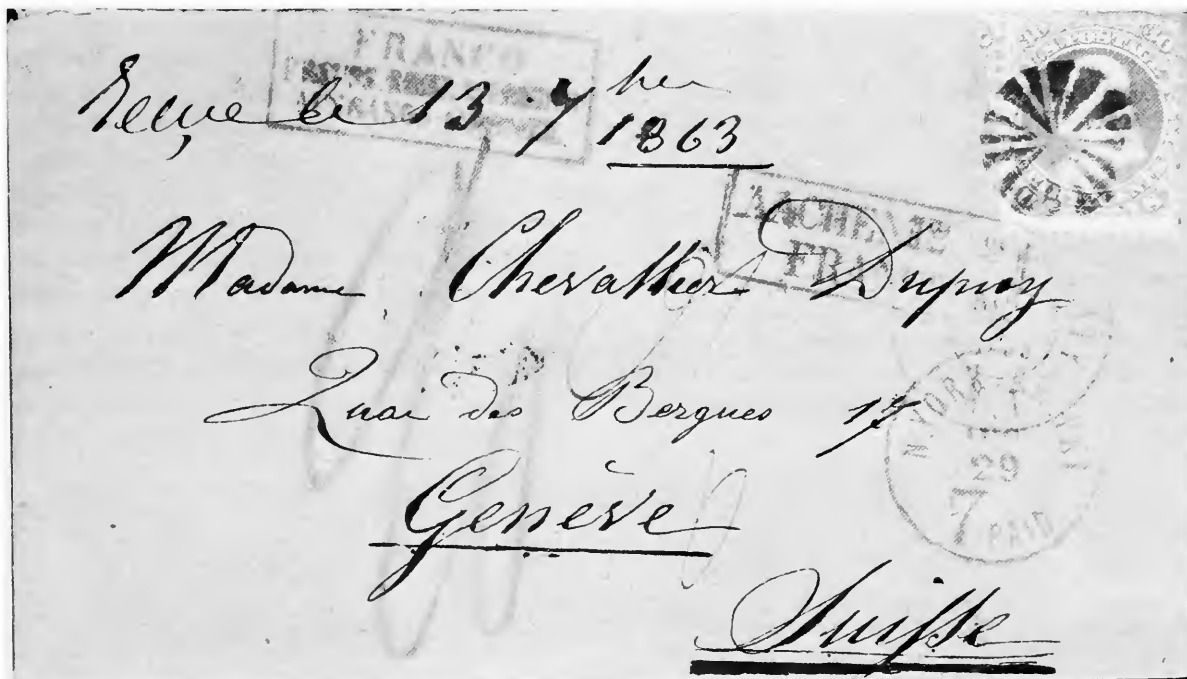 FRANCO
Reçue le 13. 7ber 1863
AACHEN
FRANCO
Madame Chevallier Dupuy
Quai des Bergues 17
Genève
Suisse
N. YORK
29
7
PAID